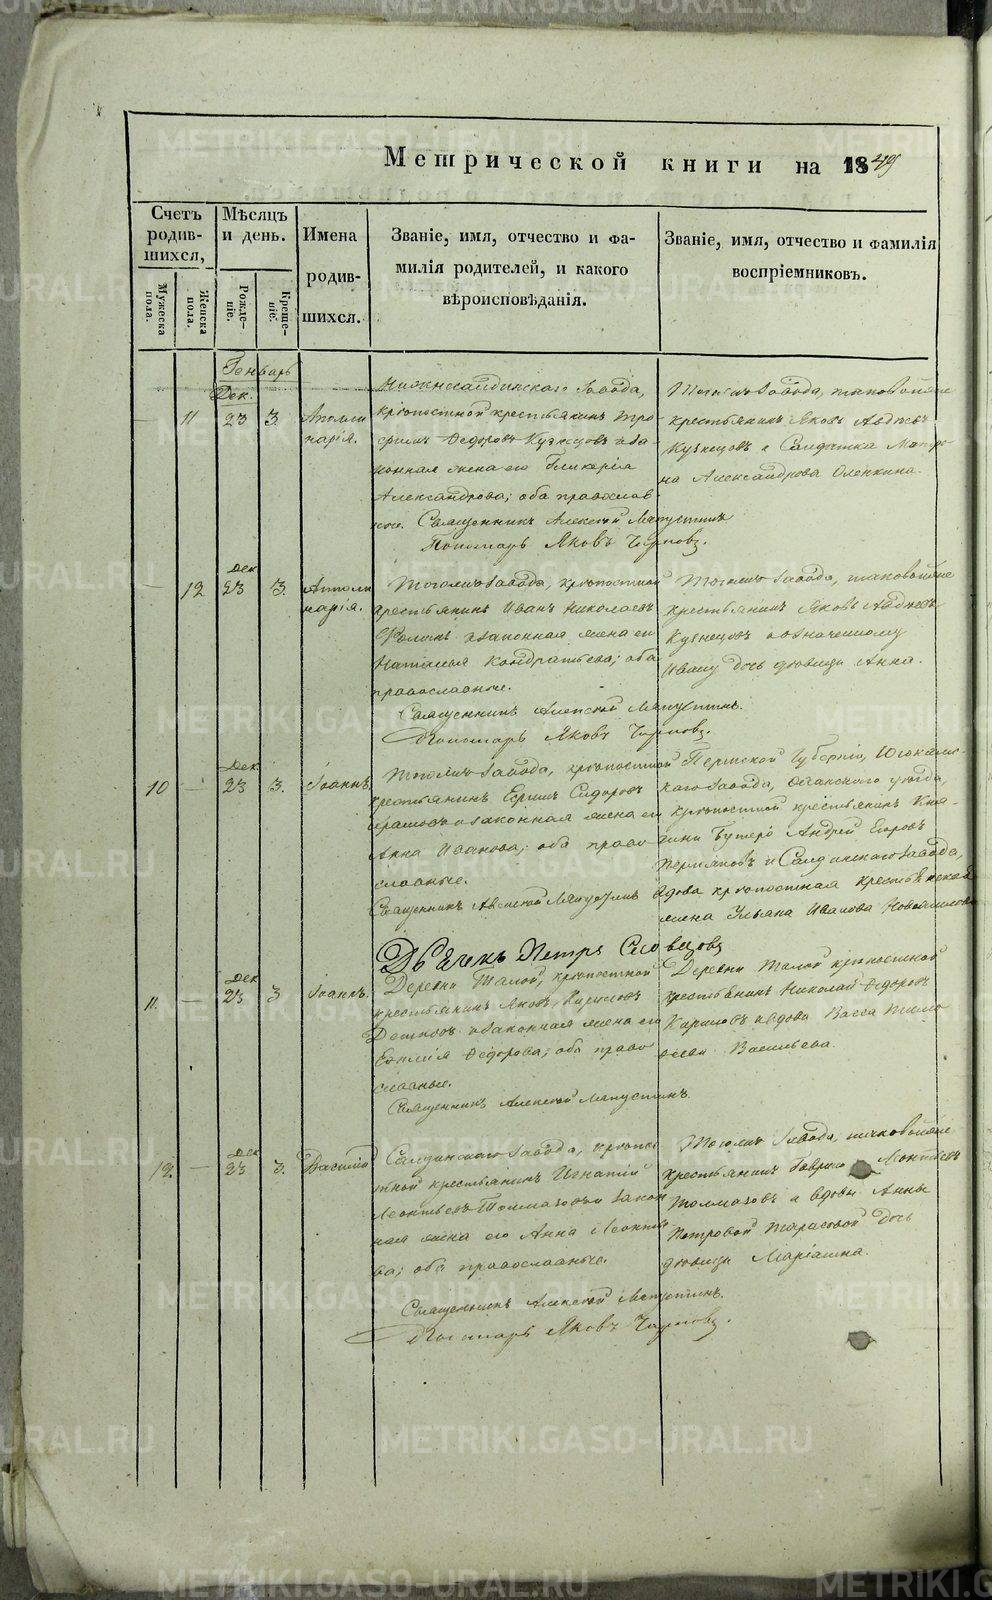 METRIKI.GASO-URAL.RU
Метрической книги на 1849
Счетъ родив-шихся,
Мужеска пола.
Женска пола.
Мѣсяцъ и день.
Рожде-ніе.
Креще-ніе.
Имена родив-шихся.
Званіе, имя, отчество и фа-
милія родителей, и какого
вѣроисповѣданія.
Званіе, имя, отчество и фамилія
воспріемниковъ.
Генварь
Дек.
11 23 3. Аполли
нарія.
Нижнесалдинскаго завода,
крѣпостной крестьянинъ Тро
фимъ Ѳедоровъ Кузнецовъ и за
конная жена его Гликерія
Александрова; оба православ
ные. Священникъ Алексей
Пономарь Яковъ
Тогожъ завода, таковойже
крестьянинъ Яковъ
Кузнецовъ и Салдинка Матро
на Александрова
дек
12 23 3. Апполи
нарія.
Тогожъ завода, крѣпостной
крестьянинъ Иванъ Николаевъ
и законная жена его
Наталья Кондратьева; оба
православные.
Священникъ Алексей
Пономарь Яковъ
Тогожъ завода, таковойже
крестьянинъ Яковъ
Кузнецовъ и означенному
Ивану дочь девица Анна.
дек
10 — 23 3. Іоаннъ.
Тогожъ завода, крѣпостной
крестьянинъ Ефимъ Сидоровъ
и законная жена его
Анна Иванова; оба право
славные.
Священникъ Алексей
Пермской Губерніи,
завода, Осинского уезда,
крѣпостной крестьянинъ Кня-
гини Бутеро Андрей Егоровъ
и Салдинскаго завода,
вдова крѣпостная крестьянская
жена Ульяна Иванова
Дьячекъ Петръ Словцовъ
дек
11. — 23 3 Іоаннъ.
Деревни Талой, крѣпостной
крестьянинъ Яковъ Кириловъ
и законная жена его
Ѳедорова; оба право
славные.
Священникъ Алексей
Деревни Талой крѣпостной
крестьянинъ Николай Ѳедоровъ
и вдова Васса Тимо
феева Васильева.
дек
12. — 23 3. Василій
Салдинскаго завода, крѣпос
тной крестьянинъ Игнатій
Леонтьевъ Толмачовъ и закон
ная жена его Анна Леонтье
ва; оба православные.
Священникъ Алексей
Пономарь Яковъ
Тогожъ завода, таковойже
крестьянинъ Гаврило Леонтьевъ
Толмачовъ и вдовы Анны
Петровой Тарасовой дочь
девица Маріанна